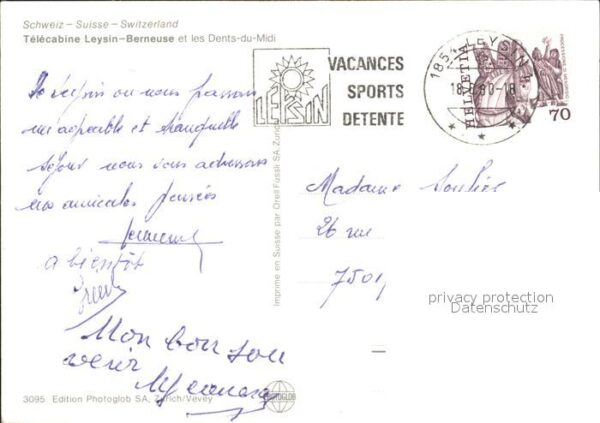 Schweiz – Suisse – Switzerland
Télécabine Leysin–Berneuse et les Dents-du-Midi
De Leysin ou nous passons
un agréable et tranquille
séjour nous vous adressons
nos amicales pensées
a bientôt
Mon bon sou
venir
3095 Edition Photoglob SA, Zürich/Vevey
PHOTOGLOB
Imprimé en Suisse par Orell Füssli SA, Zürich
LEYSIN
VACANCES
SPORTS
DETENTE
1854 LEYSIN
HELVETIA
70
Madame Soulier
26 rue
7501
privacy protection
Datenschutz